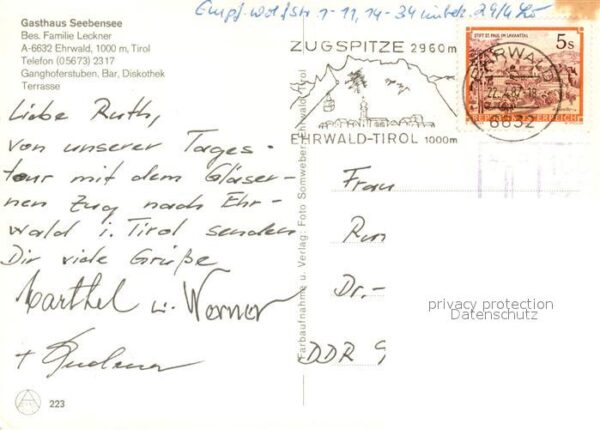 Empf. wolfstr. 1-11, 14-34 unbek. 29/4
Gasthaus Seebensee
Bes. Familie Leckner
A-6632 Ehrwald, 1000 m, Tirol
Telefon (05673) 2317
Ganghoferstuben, Bar, Diskothek
Terrasse
ZUGSPITZE 2960m
EHRWALD-TIROL 1000m
STIFT ST. PAUL IM LAVANTTAL
5S
REPUBLIK ÖSTERREICH
EHRWALD
6632
Liebe Ruth,
von unserer Tages-
tour mit dem Gläser-
nen Zug nach Ehr-
wald i. Tirol senden
Dir viele Grüße
u. Werner
+
Farbaufnahme u. Verlag: Foto Somweber, Ehrwald, Tirol
Frau
Dr.-
DDR
privacy protection
Datenschutz
223